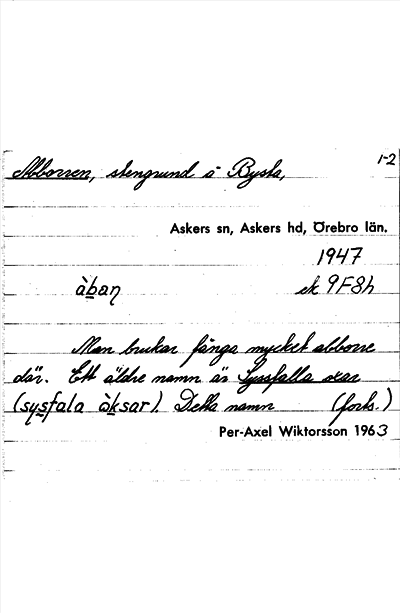 1-2
Abborren, stengrund å Bysta,
Askers sn, Askers hd, Örebro län.
1947
àban ek 9F8h
Man brukar fånga mycket abborre
där. Ett äldre namn är Syssfalla oxar
(sysfala òksar). Detta namn (forts.)
Per-Axel Wiktorsson 1963